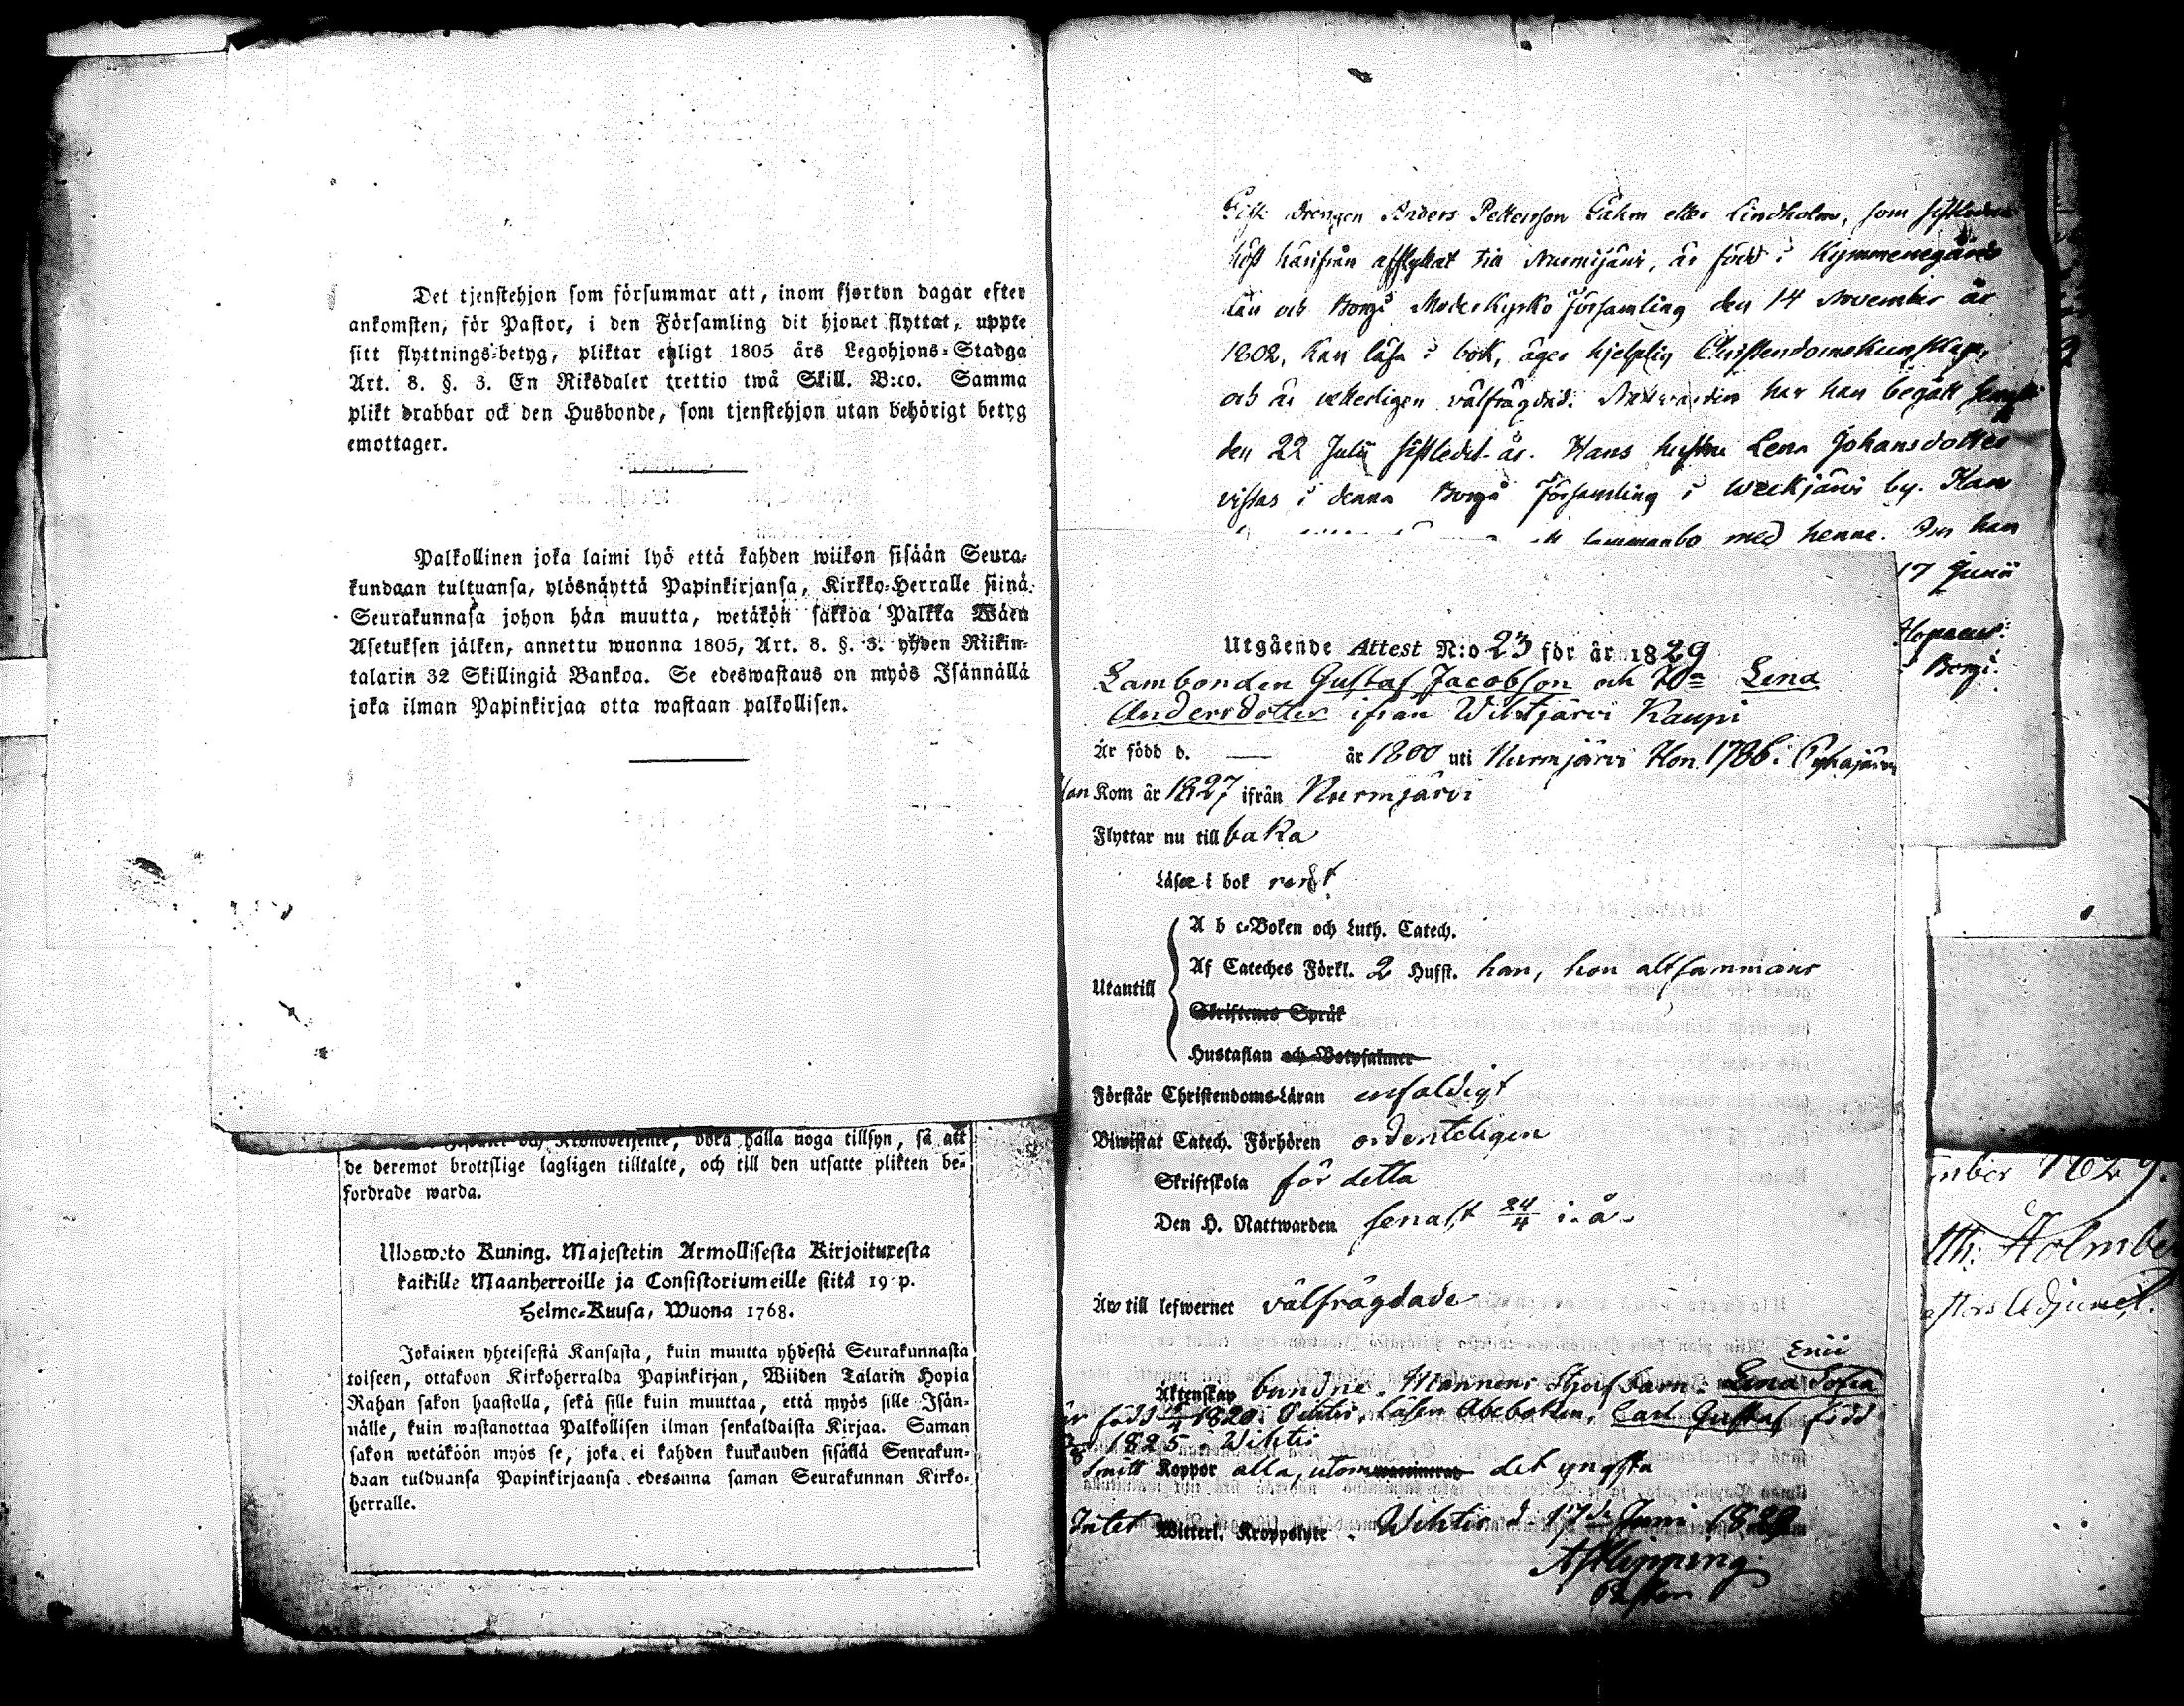 Det tjenstehjon som försummar att, inom fjorton dagar efter
ankomsten, för Pastor, i den Församling dit hjonet flyttat, uppte
sitt flyttnings-betyg, pliktar enligt 1805 års Legohjons-Stadga
Art. 8. §. 3. En Riksdaler trettio twå Skill. B:co. Samma
plikt drabbar ock den Husbonde, som tjenstehjon utan behörigt betyg
emottager.
Palkollinen joka laimi lyö että kahden wiikon sisään Seura-
kundaan tultuansa, ylösnäyttä Papinkirjansa, Kirkko-Herralle siinä
Seurakunnasa johon hän muutta, wetäkön sakkoa Palkka Wäen
Asetuksen jälken, annettu wuonna 1805, Art. 8. §. 3. yhden Riikin-
talarin 32 Skillingiä Bankoa. Se edeswastaus on myös Isännällä
joka ilman Papinkirjaa otta wastaan palkollisen.
och Kronobetjente, böra hålla noga tillsyn, så att
de deremot brottslige lagligen tilltalte, och till den utsatte plikten be-
fordrade warda.
Ulosweto Kuning. Majestetin Armollisesta Kirjoituxesta
kaikille Maanherroille ja Consistoriumeille siitä 19 p.
Helme-Kuusa, Wuona 1768.
Jokainen yhteisestä Kansasta, kuin muutta yhdestä Seurakunnasta
toiseen, ottakoon Kirkoherralda Papinkirjan, Wiiden Talarin Hopia
Rahan sakon haastolla, sekä sille kuin muuttaa, että myös sille Isän-
nälle, kuin wastanottaa Palkollisen ilman senkaldaista Kirjaa. Saman
sakon wetäköön myös se, joka ei kahden kuukauden sisällä Seurakun-
daan tulduansa Papinkirjaansa edesanna saman Seurakunnan Kirko-
herralle.
Drengen Anders Pettersson Gahm eller Lindholm, som sistledne
höst härifrån afflyttat till Nurmijärvi, är född i Kymmenegårds
Län och Borgå Moderkyrko Församling den 14 November år
1802, kan läsa i bok, äger hjelplig Christendomskunskap,
och är vetterligen välfrägdad. Nattvarden har han begått senast
den 22 Julii sistledet år. Hans hustru Lena Johansdotter
vistas i denna Borgå Församling i Weckjärvi by. Han
sammanbo med henne. han
17 Junii
Borgå.
Utgående Attest N:o 23 för år 1829
Lambonden Gustaf Jacobsson och Hu Lena
Andersdotter ifrån Wihtjärvi Kaupi
Är född d. — år 1800 uti Nurmjärvi Hon 1786 i Pyhäjärvi
Han Kom år 1827 ifrån Nurmjärvi
Flyttar nu tillbaka
Läser i bok rent
Utantill
A b c-Boken och Luth. Catech.
Af Cateches Förkl. 2 Hufst. han, hon altsammans
Skriftenes Språk
Hustaflan och Botpsalmer
Förstår Christendoms-Läran enfaldigt
Biwistat Catech. Förhören ordenteligen
Skriftskola för detta
Den H. Nattwarden senast 24/4 i. å.
Äw till lefwernet välfrägdade
Äktenskap bundne. Mannens Styfbarn: Lena Sofia
född 1820 i Wihtis, läser Abcboken, Carl Gustaf född
1825 i Wihtis
Haft Koppor alla, utom vaccinerad det yngsta
Intet Witterl. Kroppslyte. Wihtis d. 17de Junii 1829
A F Klipping
Pastor
mber 1829.
Holmbe
Adjunct.